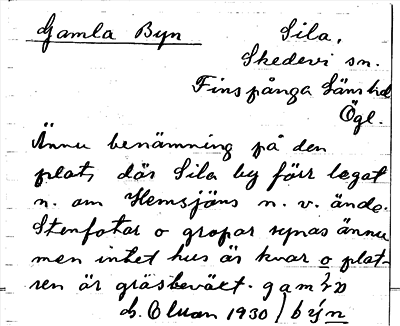 Gamla Byn
Sila,
Skedevi sn.
Finspånga Läns hd
Ögl.
Ännu benämning på den
plats, där Sila by förr legat
n. om Hemsjöns n. v. ände.
Stenfotar o gropar synas ännu
men intet hus är kvar o plat-
sen är gräsbeväxt.
1930